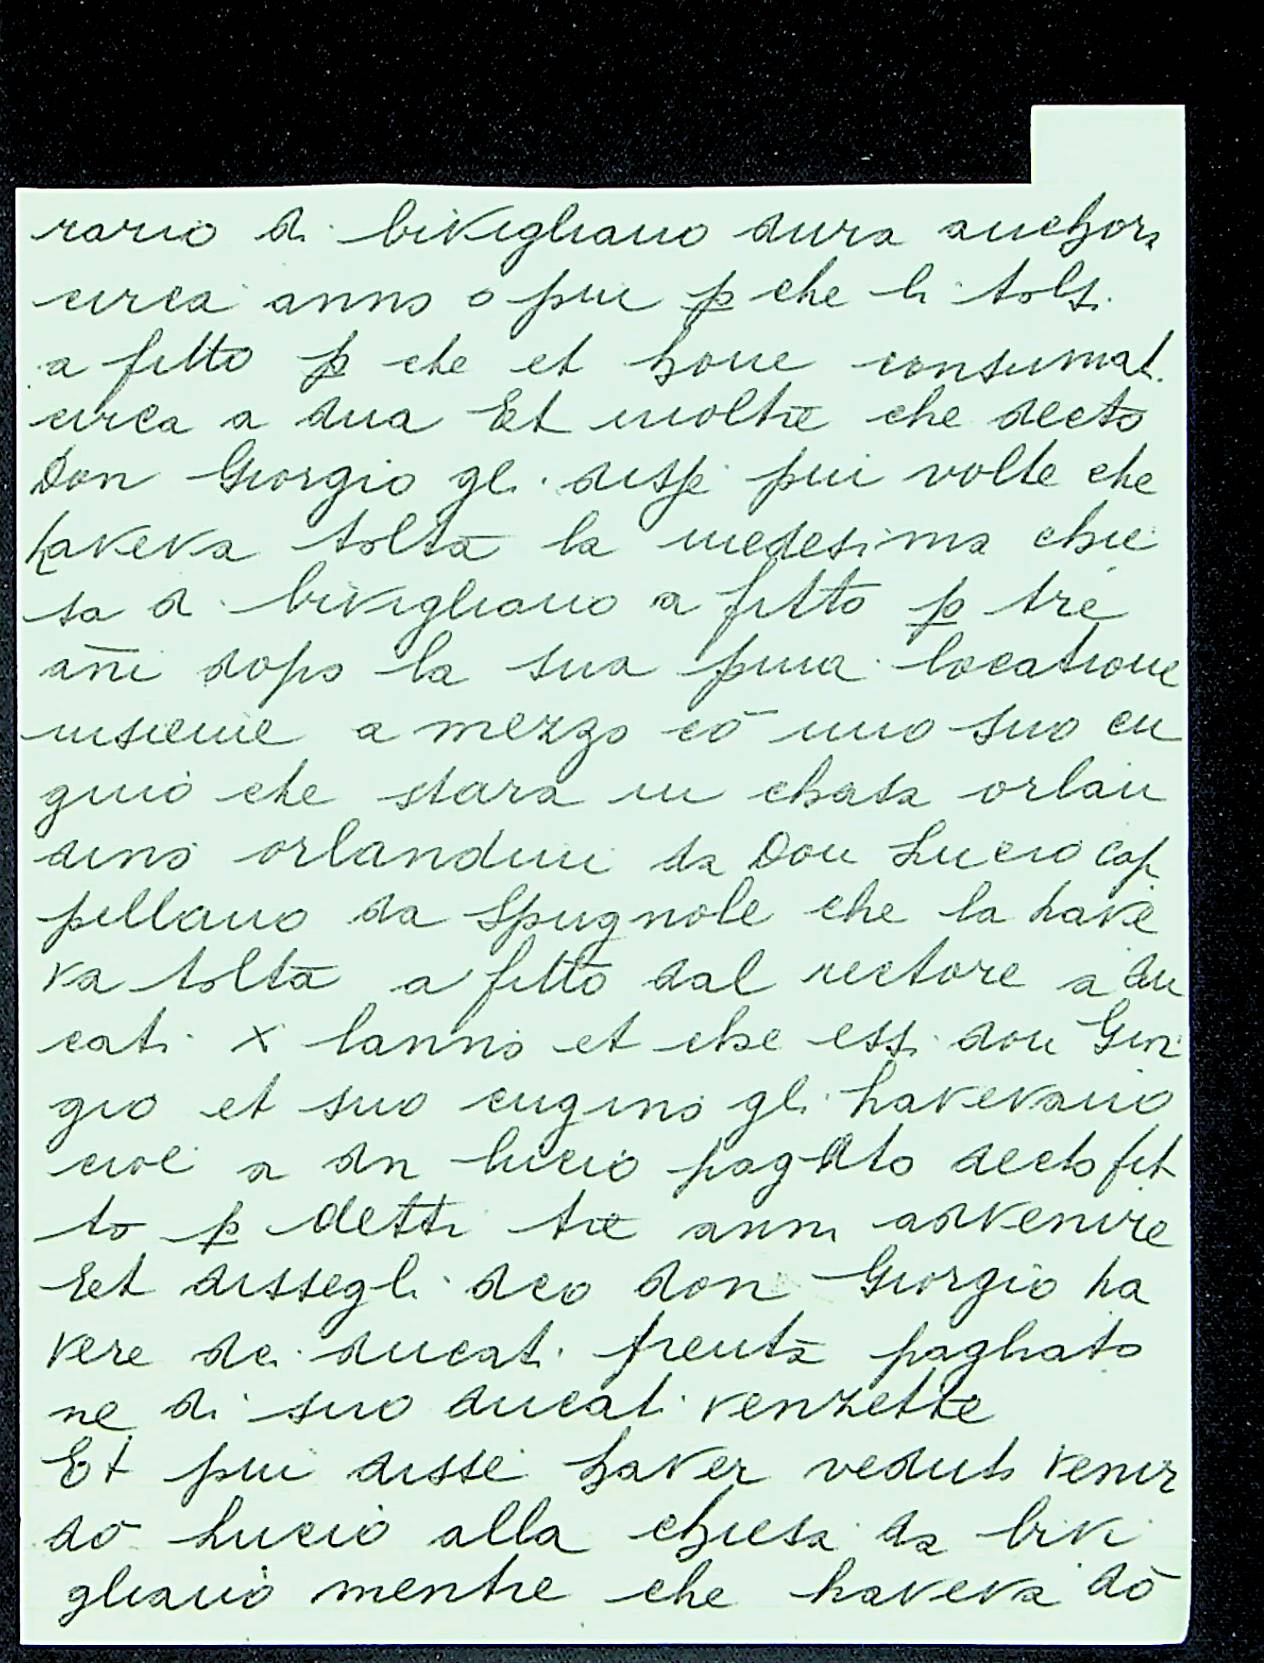 rario di bivigliano dura anchora
circa anno o piu p che li tolse
a fitto p che et hone consumat.
circa a dua Et inoltre che decto
Don Giorgio gli disse piu volte che
haveva tolta la medesima chie
sa di bivigliano a fitto p tre
añi dopo la sua prima locatione
insieme a mezzo cō uno suo cu
gino che stara in chasa orlan
dino orlandini da Don Lucio cap
pellano da Spugnole che la have
va tolta a fitto dal rectore a du
cati x lanno et che essi don Gior
gio et suo cugino gli havevano
cioe a dn lucio pagato decto fit
to p detti tre anni advenire
Et dissegli dco don Giorgio ha
vere de ducati trenta paghato
ne di suo ducati venzette
Et piu disse haver veduto venir
dō Lucio alla chiesa da bivi
gliano mentre che haveva dō